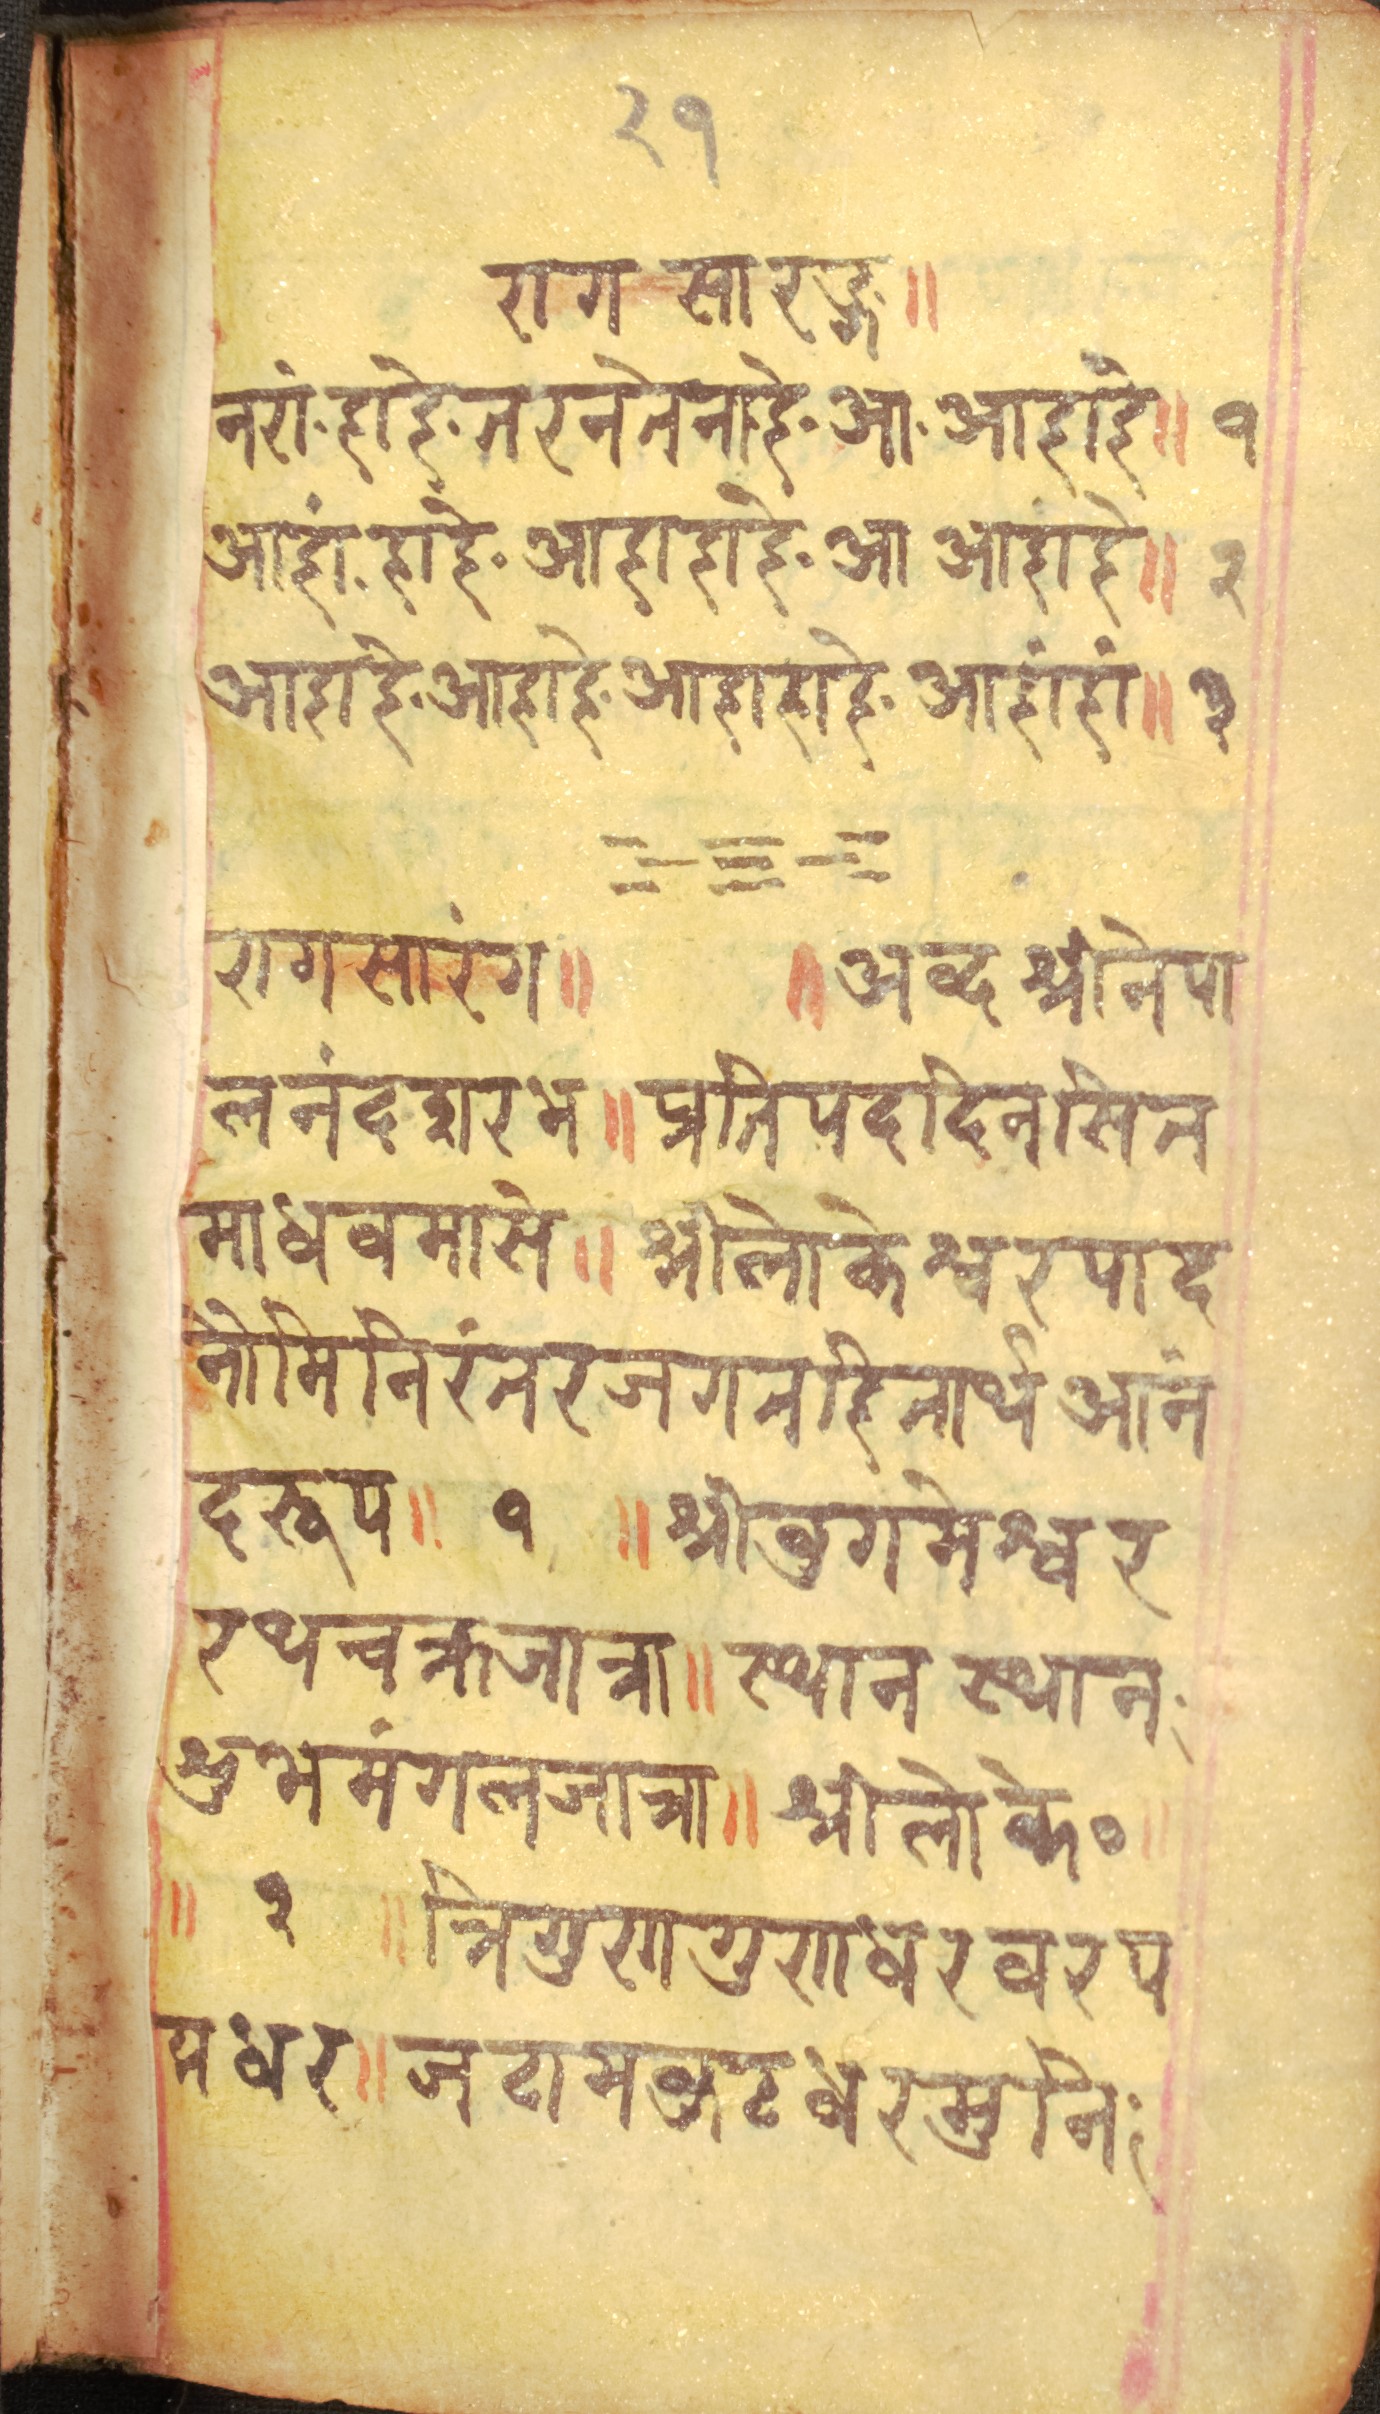 २१
राग सारङ्ग॥
नरां·हाहे·तरनेतेनाहे·आ·आहाहे॥ १
आहां·हांहे·आहाहाहे·आ आहाहे॥ २
आहाहे·आहाहे·आहाहाहे·आहांहां॥ ३
रागसारंग॥ ॥अव्द श्रीनेपा
लनंदशरभ॥प्रतिपददिनसित
माधवमासे॥श्रीलोकेश्वरपाद
नौमिनिरंतरजगतहितार्थआनं
दरूप॥ १ ॥श्रीवुगमेश्वर
रथचक्रजात्रा॥स्थान स्थान
शुभमंगलजात्रा॥श्रीलोके०
॥ २ ॥त्रिगुणगुणधरवरप
द्मधर॥जटामकुटधरमुनि